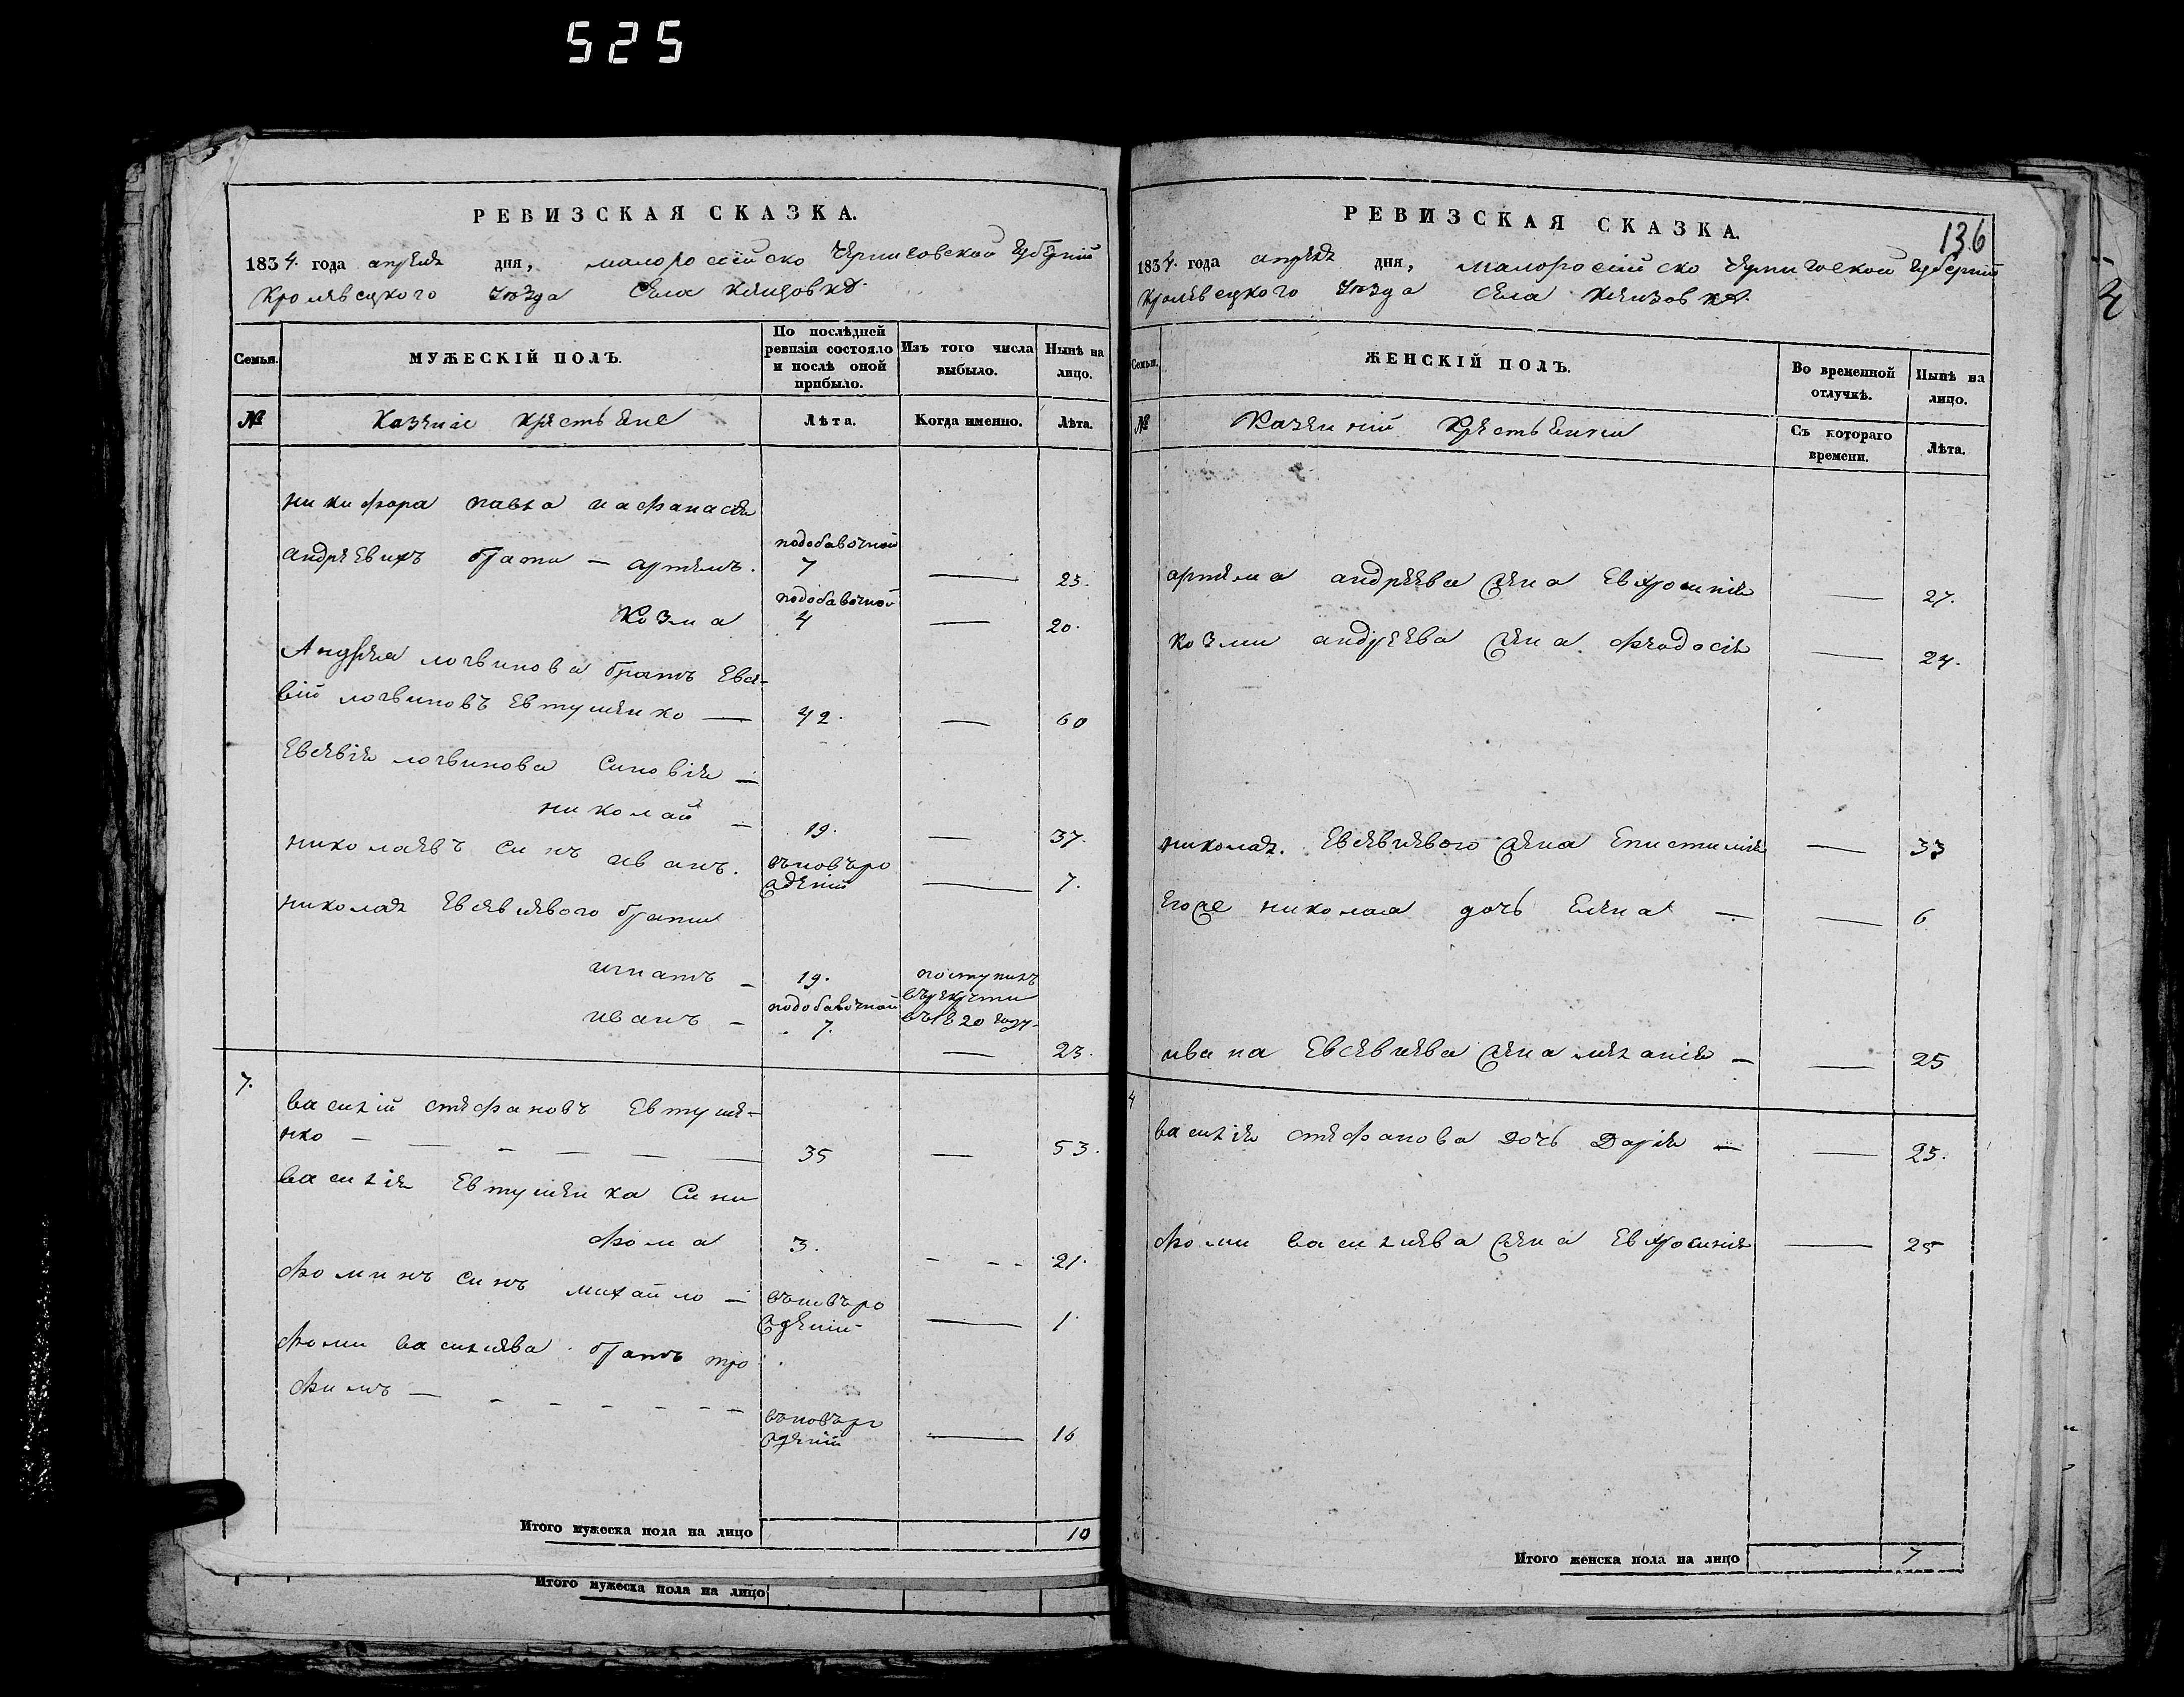 525
РЕВИЗСКАЯ СКАЗКА.
1834. года апреля дня, малоросійско Черниговской губерній
Кролевецкого уезда села
Семьи.
МУЖЕСКІЙ ПОЛЪ.
По послѣдней ревизіи состояло и послѣ оной прибыло.
Изъ того числа выбыло.
Нынѣ на лицо.
№
Казеніе крестьяне
Лѣта.
Когда именно.
Лѣта.
никифора павла иафанасия
андреевихъ брати — артемъ. подобавочной 7 — 25.
Козма подобавочной 4 — 20.
Андрея логвинова братъ Евсе-
вій логвиновъ Евтушенко — 42. — 60
Евсевія логвинова синовія —
николай — 19. — 37.
николаевъ синъ иванъ. вьновьро жденій — 7.
николая Евсевиевого брати
игнатъ — 19. поступилъ врекрути въ 1820 году.
иванъ — подобавочной 7. — 23.
7. василій стефановъ Евтуше-
нко — — — — — — 35 — 53.
василія Евтушенка сини
фома 3. - - - 21.
фоминъ синъ михайло — вьновьро жденій — 1
фоми василиева братъ тро
фимъ — - - - - - - вьновьро жденій — 16
Итого мужеска пола на лицо 10
Итого мужеска пола на лицо
РЕВИЗСКАЯ СКАЗКА.
136
1834. года апреля дня, малоросійско Черниговской губерній
Кролевецкого уезда села
Семьи.
ЖЕНСКІЙ ПОЛЪ.
Во временной отлучкѣ.
Нынѣ на лицо.
№
Казенній крестьянки
Съ котораго времени.
Лѣта.
артема андреева жена Евфросинія — 27.
козми андреева жена феодосія — 24.
николая. Евсевиевого жена Епистимия — 33
Егоже николая дочь Елена — — 6
ивана Евсевиева жена мелания — — 25
василія стефанова дочь Дарія — — 25.
фоми василиева жена Евфросинія — 25
Итого женска пола на лицо 7